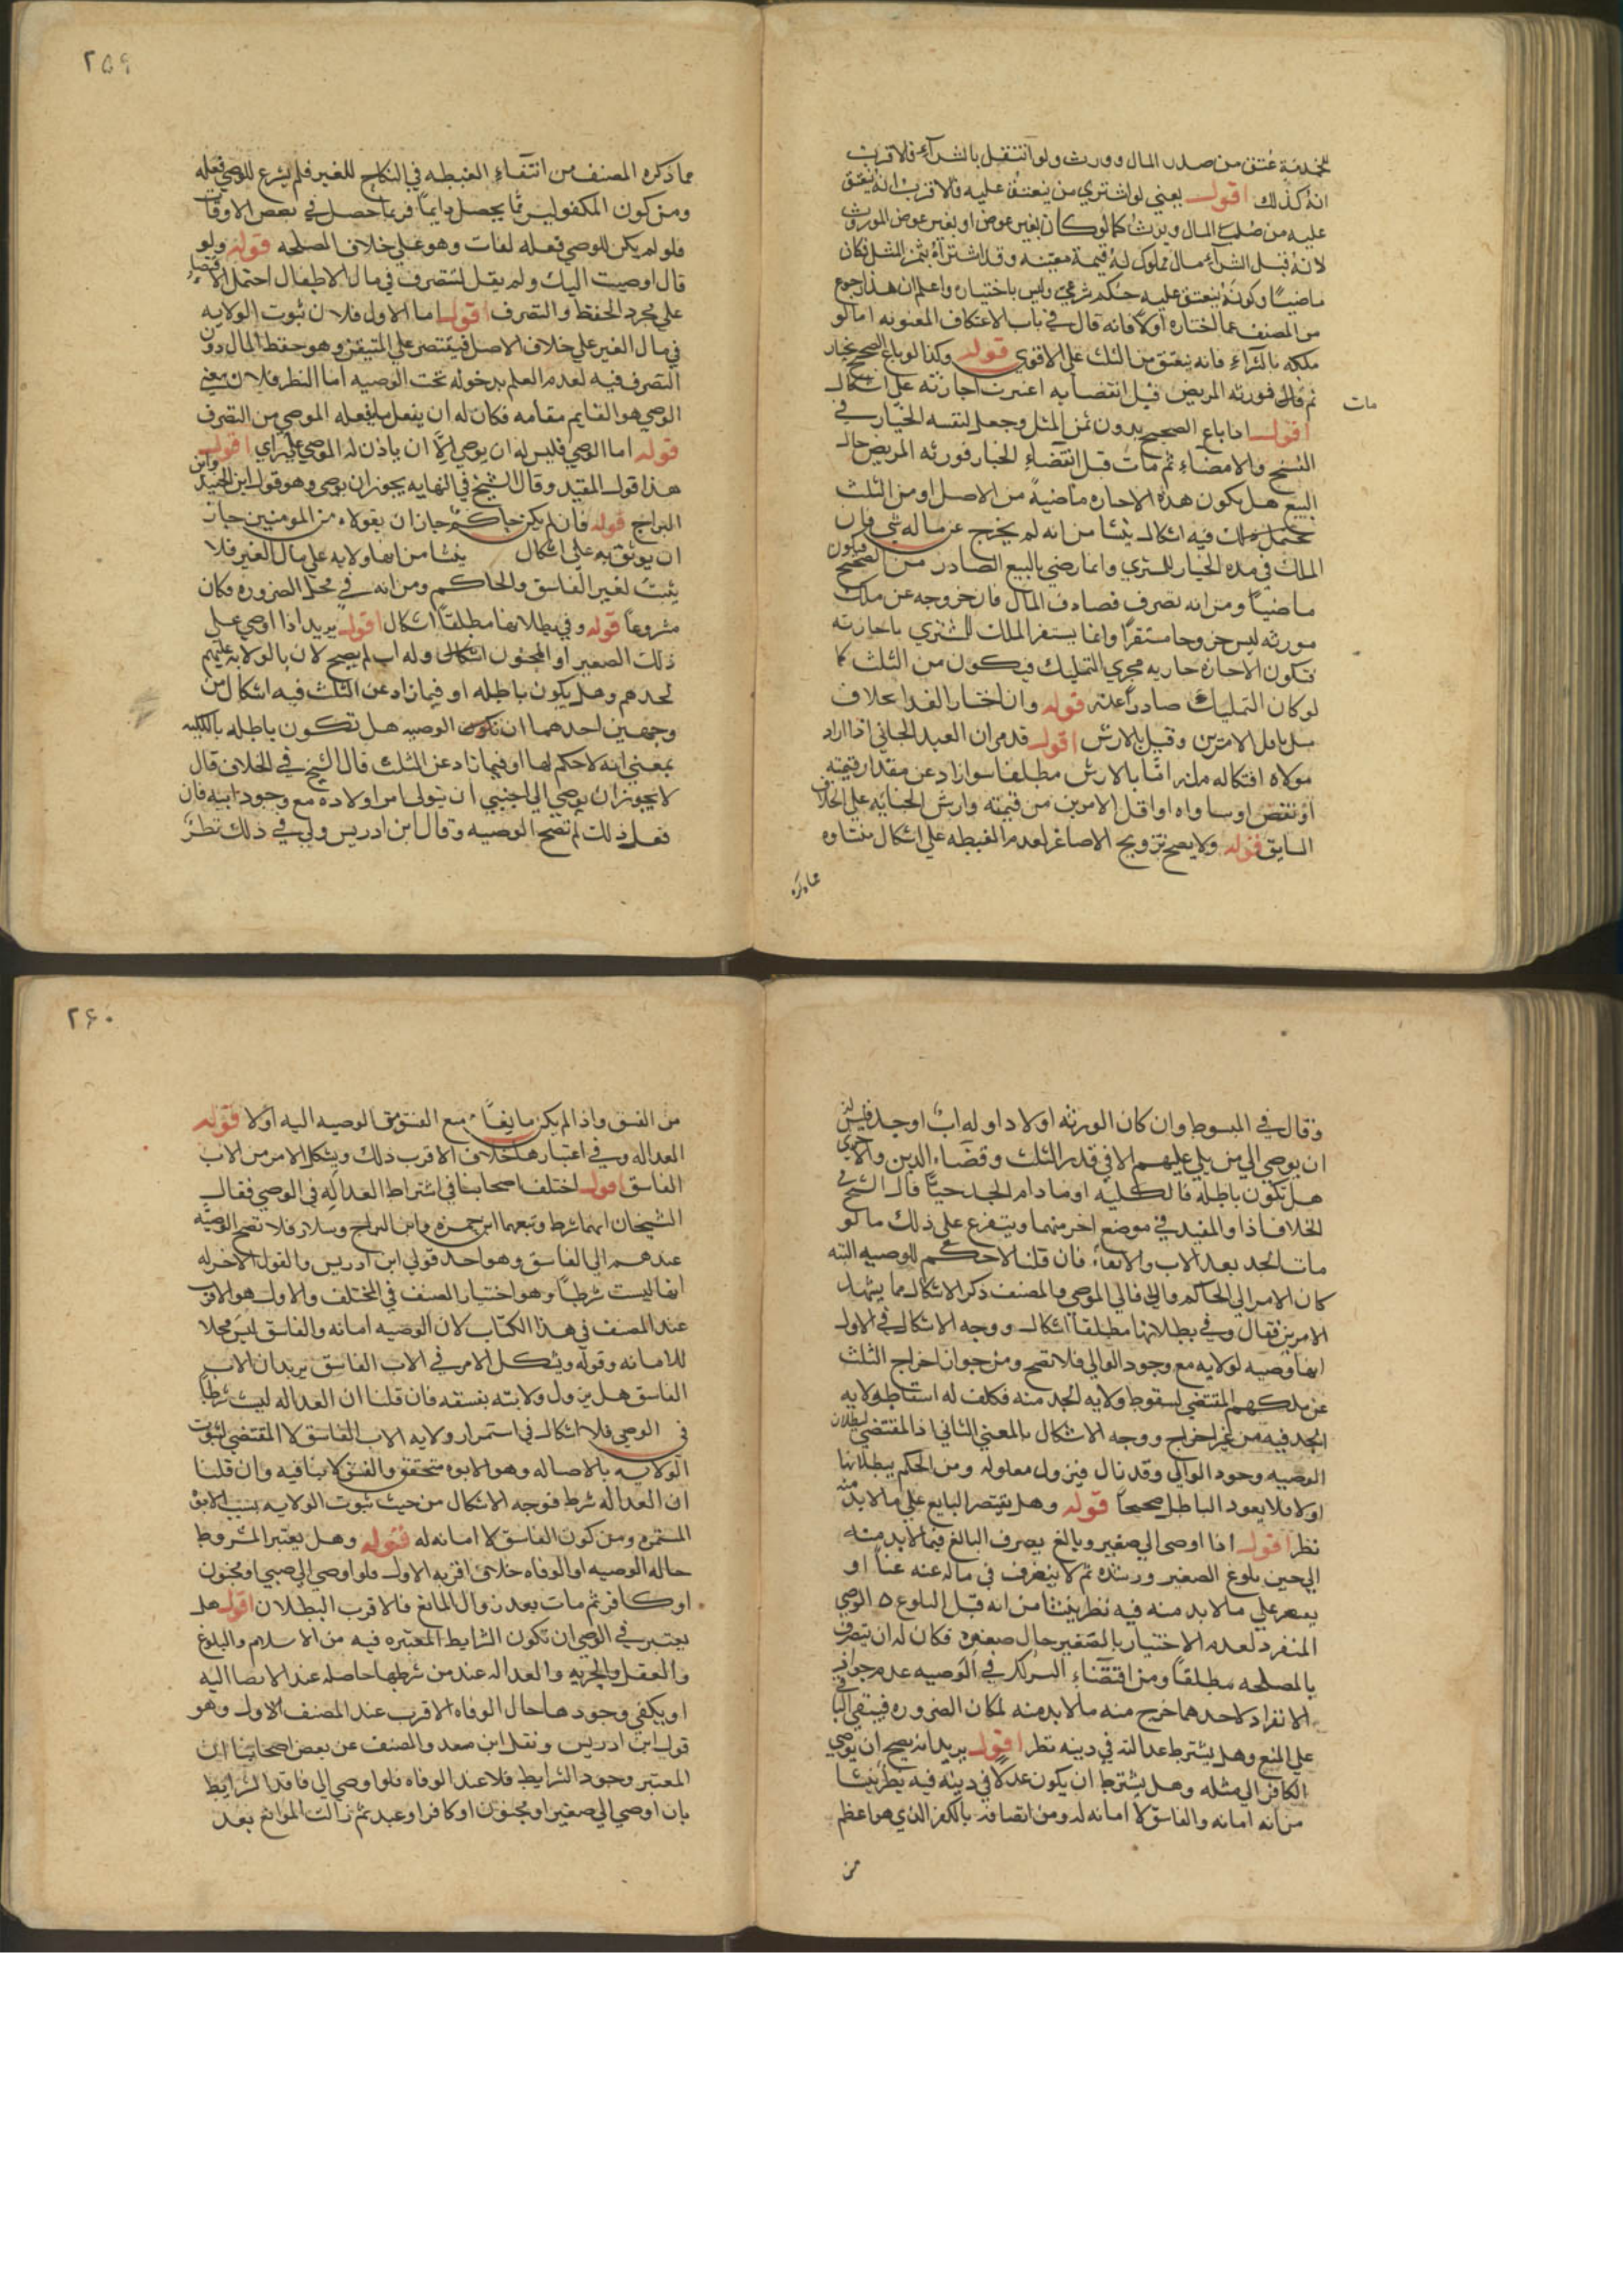 للخدمة عتق من صلب المال وورث ولو انتقل بالشرآء فالاقرب
انه كذلك اقول يعني لو اشتري من ينعتق عليه فالاقرب انه يعتق
عليه من صلب المال ويرث كما لو كان بغير عوض او بغير عوض الموروث
لانه قبل الشرآء مال مملوك له قيمة معينه وقد اشتراه بثمن المثل فكان
ماضيا وكونه ينعتق عليه حكم شرعي وليس باختياره واعلم ان هذا رجوع
من المصنف عما اختاره اولا فانه قال في باب الاعتكاف المعنونه اما لو
ملكه بالشرآء فانه ينعتق من الثلث علي الاقوي قوله وكذا لو باع الصحيح بخيار
ثم مات فورثه المريض قبل انقضايه اعتبرت اجازته علي اشكال
مات
اقول اذا باع الصحيح بدون ثمن المثل وجعل لنفسه الخيار في
الفسخ والامضآء ثم مات قبل انقضآء الخيار فورثه المريض حال
البيع هل يكون هذه الاجازه ماضية من الاصل او من الثلث
يحتمل فيه اشكال ينشا من انه لم يخرج عن ماله شي فان
الملك في مده الخيار للمشتري وانما رضي بالبيع الصادر من الصحيح فيكون
ماضيا ومن انه تصرف فصادف المال فان خروجه عن ملك
مورثه ليس خروجا مستقرا وانما يستقر الملك للمشتري باجازته
فتكون الاجازه جاريه مجري التمليك فيكون من الثلث كما
لو كان التمليك صادرا عنه قوله وان اختار الفدا بخلاف
بذل باقل الامرين وقيل بالارش اقول قد مر ان العبد الجاني اذا اراد
مولاه افتكاله ملزم اما بالارش مطلقا سوا زاد عن مقدار قيمته
او نقص او ساواه او اقل الامرين من قيمته وارش الجنايه علي الخلاف
السابق قوله ولا يصح تزويج الاصاغر لعدم الغبطه علي اشكال منشاوه
مما ذكره
٢٥٩
مما ذكره المصنف من انتفآء الغبطه في النكاح للغير فلم يشرع للوصي فعله
ومن كون المكفو ليس مما يحصل دايما فربما حصل في بعض الاوقات
فلو لم يكن للوصي فعله لفات وهو علي خلاف المصلحه قوله ولو
قال اوصيت اليك ولم يقل لتتصرف في مال الاطفال احتمل الاقتصار
علي مجرد الحفظ والتصرف اقول اما الاول فلان ثبوت الولايه
في مال الغير علي خلاف الاصل فيقتصر علي المتيقن وهو حفظ المال دون
التصرف فيه لعدم العلم بدخوله تحت الوصيه اما النظر فلان معني
الوصي هو القايم مقامه فكان له ان يفعل ما يفعله الموصي من التصرف
قوله اما الوصي فليس له ان يوصي الا ان ياذن له الموصي علي راي اقول
هذا قول المفيد وقال الشيخ في النهايه يجوز ان يوصي وهو قول ابن الجنيد وابن
البراج قوله فان لم يكن حاكم جاز ان يتولاه من المومنين جاز
ان يوثق به علي اشكال ينشا من انها ولايه علي مال الغير فلا
يثبت لغير الفاسق والحاكم ومن انه في محل الضروره فكان
مشروعا قوله وفي بطلانها مطلقا اشكال اقول يريد اذا اوصي علي
ذلك الصغير او المجنون اشكال وله اب لم يصح لان بالولايه عليهم
لجدهم وهل يكون باطله او فيما زاد عن الثلث فيه اشكال من
وجهين احدهما ان تكون الوصيه هل تكون باطله بالكليه
بمعني انه لا حكم لها او فيما زاد عن الثلث قال الشيخ في الخلاف قال
لا يجوز ان يوصي الي اجنبي ان يتولي امر اولاده مع وجود ابيه فان
فعل ذلك لم تصح الوصيه وقال ابن ادريس ولي في ذلك نظر
وقال في المبسوط وان كان الورثه اولادا وله اب او جد فليس له
ان يوصي الي من يلي عليهم الا في قدر الثلث وقضآء الدين والاخري
هل تكون باطله فالكليه او مادام الجد حيا قال الشيخ في
الخلاف اذا والمفيد في موضع اخر منهما ويتفرع علي ذلك ما لو
مات الجد بعد الاب والانفآء فان قلنا لا حكم للوصيه البته
كان الامر الي الحاكم والا فالي الموصي والمصنف ذكر الاشكال مما يشمل
الامرين فقال وفي بطلانها مطلقا اشكال ووجه الاشكال في الاول
انها وصيه لولايه مع وجود الوالي فلا تصح ومن جواز اخراج الثلث
عن ملكهم المقتضي لسقوط ولايه الجد منه فكلف له اسقاط ولايه
الجد فيه من غير اخراج ووجه الاشكال بالمعني الثاني اذ المقتضي لبطلان
الوصيه وجود الوالي وقد زال فيزول معلوله ومن الحكم ببطلانها
اولا فلا يعود الباطل صحيحا قوله وهل يقتصر البايع علي ما لابد منه
نظر اقول اذا اوصي الي صغير وبالغ يصرف البالغ فيما لابد منه
الي حين بلوغ الصغير ورشده ثم لا ينصرف في ماله عنه عنا او
يقصر علي ما لابد منه فيه نظر ينشا من انه قبل البلوغ ه الوصي
المنفرد لعدم الاختيار بالصغير حال صغره فكان له ان يتصرف
بالمصلحه مطلقا ومن اقتضآء التشريك في الوصيه عدم جواز
الانفراد لاحدهما خرج منه ما لابد منه لمكان الضروره فيبقي الباقي
علي المنع وهل يشترط عدالته في دينه نظر اقول يريد انه يصح ان يوصي
الكافر الي مثله وهل يشترط ان يكون عدلا في دينه فيه نظر ينشا
من انه امانه والفاسق لا امانه له ومن اتصافه بالكفر الذي هو اعظم
من
٢٦٠
من الفسق واذا لم يكن مانعا مع الفسق مقا الوصيه اليه اولا قوله
العداله وفي اعتبارها خلاف الاقرب ذلك ويشكل الامر من الاب
الفاسق اقول اختلف اصحابنا في اشتراط العداله في الوصي فقال
الشيخان انها شرط وتبعهما ابن حمزه وابن البراج وسلار فلا تصح الوصيه
عندهم الي الفاسق وهو احد قولي ابن ادريس والقول الاخر له
انها ليست شرطا وهو اختيار المصنف في المختلف والاول هو الاقرب
عند المصنف في هذا الكتاب لان الوصيه امانه والفاسق ليس محلا
للامانه وقوله ويشكل الامر في الاب الفاسق يريد ان الاب
الفاسق هل يزول ولايته بفسقه فان قلنا ان العداله ليست شرطا
في الوصي فلا اشكال في استمرار ولايه الاب الفاسق لا المقتضي لثبوت
الولايه بالاصاله وهو الابوه متحقق والفسق لا ينافيه وان قلنا
ان العداله شرط فوجه الاشكال من حيث ثبوت الولايه بسبب الابوه
المستمره ومن كون الفاسق لا امانه له قوله وهل يعتبر الشروط
حاله الوصيه او الوفاه خلاف اقربه الاول فلو اوصي الي صبي او مجنون
او كافر ثم مات بعد زوال المانع فالاقرب البطلان اقول هل
يعتبر في الوصي ان تكون الشرايط المعتبره فيه من الاسلام والبلوغ
والعقل والحريه والعداله عند من شرطها حاصله عند الايصا اليه
او يكفي وجودها حال الوفاه الاقرب عند المصنف الاول وهو
قول ابن ادريس ونقل ابن سعد والمصنف عن بعض اصحابنا ان
المعتبر وجود الشرايط فلا عند الوفاه فلو اوصي الي فاقد الشرايط
بان اوصي الي صغير او مجنون او كافر او عبد ثم زالت الموانع بعد